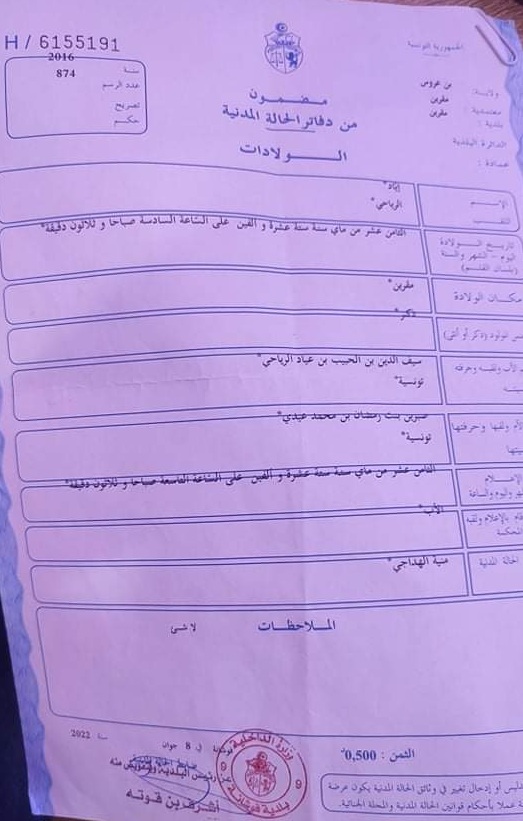 H / 6155191
الجمهورية التونسية
ولاية : بن عروس
معتمدية : مقرين
بلدية : مقرين
الدائرة البلدية
عمادة :
سنة 2016
عدد الرسم 874
تصريح
حكم
مضمون
من دفاتر الحالة المدنية
الولادات
الإسم إياد*
اللقب الرياحي*
تاريخ الولادة
اليوم - الشهر والسنة
(بلسان القلم)
الثامن عشر من ماي سنة ستة عشرة و ألفين على الساعة السادسة صباحا و ثلاثون دقيقة*
مكان الولادة مقرين*
المولود (ذكر أو أنثى) ذكر*
الأب ولقبه وحرفته سيف الدين بن الحبيب بن عياد الرياحي*
تونسية*
الأم ولقبها وحرفتها صبرين بنت رمضان بن محمد عبدي*
تونسية*
الإعلام
واليوم والساعة
الثامن عشر من ماي سنة ستة عشرة و ألفين على الساعة التاسعة صباحا و ثلاثون دقيقة*
بالإعلام ولقبه الأب*
المحكمة
الحالة المدنية منية الهداجي*
الملاحظات لا شئ
في 8 جوان سنة 2022
ضابط الحالة المدنية
عن رئيس البلدية وبتفويض منه
أشرف بن قوته
وزارة الداخلية
بلدية فوشانة
الثمن : 0,500د
أو إدخال تغيير في وثائق الحالة المدنية يكون عرضة
عملا بأحكام قوانين الحالة المدنية والمجلة الجنائية.